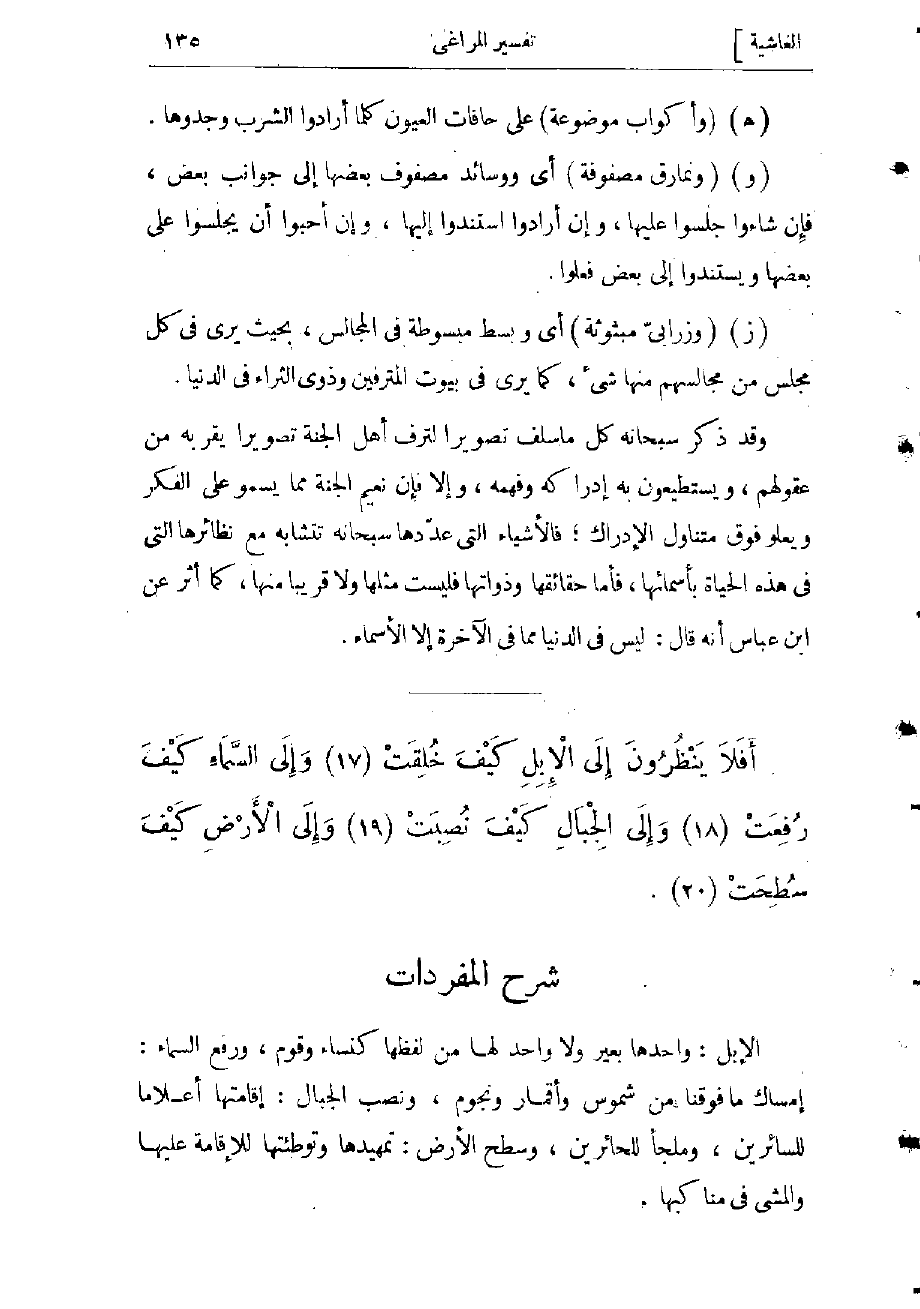 الغاشية ] تفسير المراغى ١٣٥
(ه) (وأكواب موضوعة) على حافات العيون كلما أرادوا الشرب وجدوها .
(و) (ونمارق مصفوفة) أى ووسائد مصفوف بعضها إلى جوانب بعض ،
فإن شاءوا جلسوا عليها ، وإن أرادوا استندوا إليها ، وإن أحبوا أن يجلسوا على
بعضها ويستندوا إلى بعض فعلوا .
(ز) (وزرابىّ مبثوثة) أى وبسط مبسوطة فى المجالس ، بحيث يرى فى كل
مجلس من مجالسهم منها شىء ، كما يرى فى بيوت المترفين وذوى الثراء فى الدنيا .
وقد ذكر سبحانه كل ماسلف تصويرا لترف أهل الجنة تصويرا يقربه من
عقولهم ، ويستطيعون به إدراكه وفهمه ، وإلا فإن نعيم الجنة مما يسمو على الفكر
ويعلو فوق متناول الإدراك ؛ فالأشياء التى عدّدها سبحانه تتشابه مع نظائرها التى
فى هذه الحياة بأسمائها ، فأما حقائقها وذواتها فليست مثلها ولا قريبا منها ، كما أثر عن
ابن عباس أنه قال : ليس فى الدنيا مما فى الآخرة إلا الأسماء .
أَفَلاَ يَنْظُرُونَ إِلَى الْإِبِلِ كَيْفَ خُلِقَتْ (١٧) وَإِلَى السَّمَاءِ كَيْفَ
رُفِعَتْ (١٨) وَإِلَى الْجِبَالِ كَيْفَ نُصِبَتْ (١٩) وَإِلَى الْأَرْضِ كَيْفَ
سُطِحَتْ (٢٠) .
شرح المفردات
الإبل : واحدها بعير ولا واحد لهـا من لفظها كنساء وقوم ، ورفع السماء :
إمساك مافوقنا من شموس وأقمـار ونجوم ، ونصب الجبال : إقامتها أعـلاما
للسائرين ، وملجأ للحائرين ، وسطح الأرض : تمهيدها وتوطئتها للإقامة عليهـا
والمشى فى مناكبها .